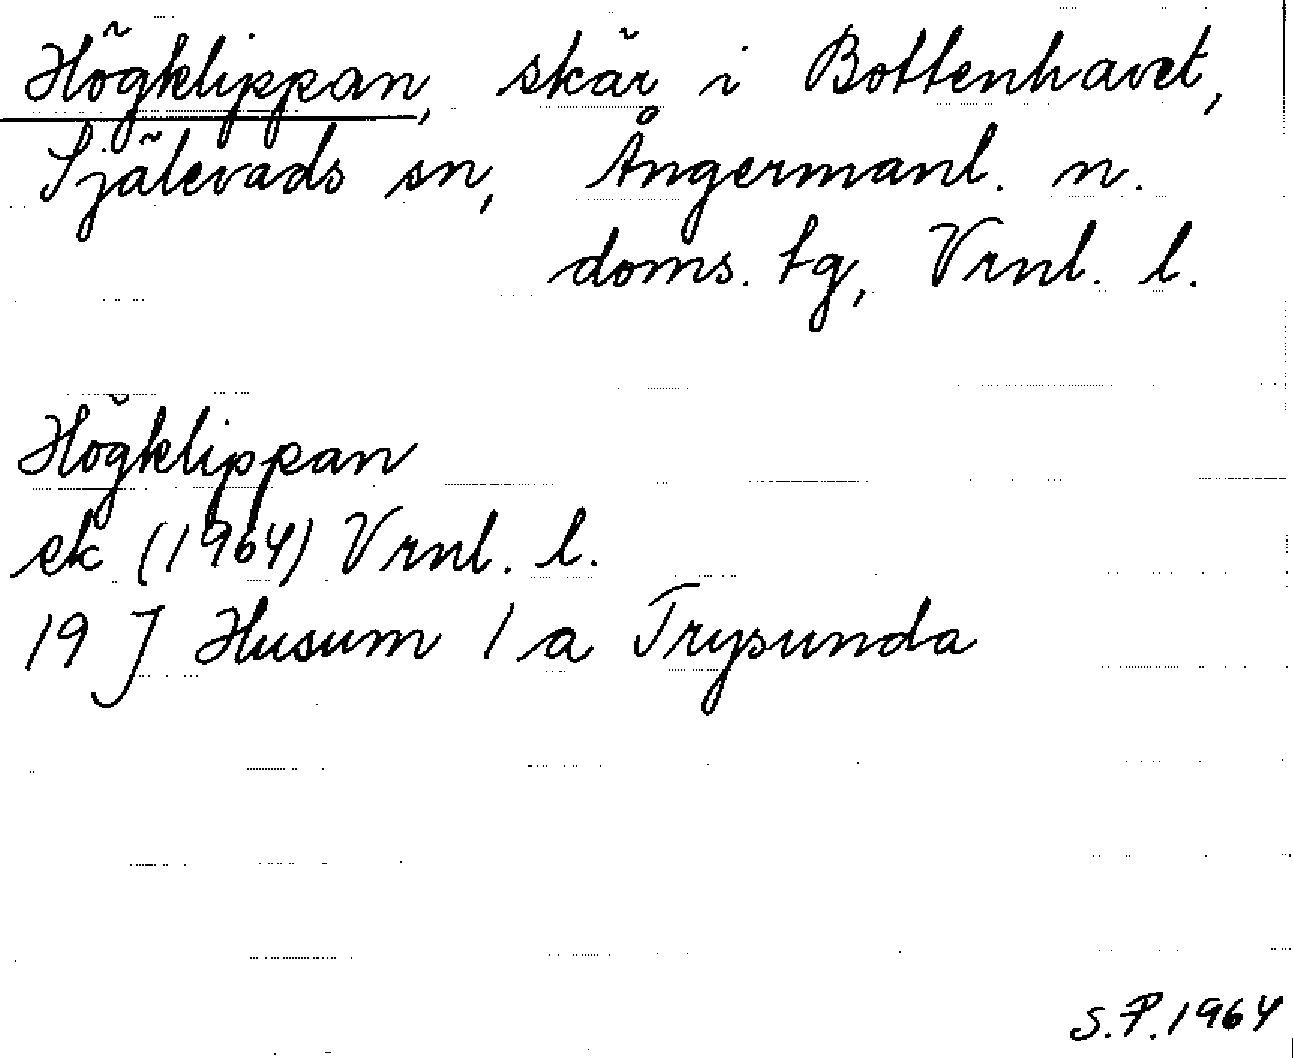 Högklippan, skär i Bottenhavet,
Själevads sn, Ångermanl. n.
doms. tg, Vrnl. l.
Högklippan
ek (1964) Vrnl. l.
19 J Husum 1 a Trysunda
S.P. 1964